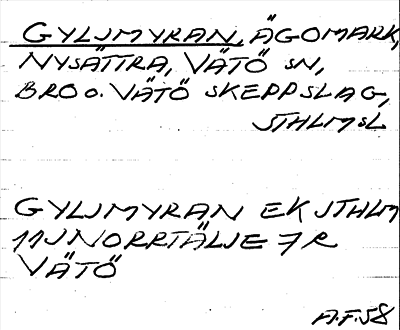 GYLJMYRAN, ÄGOMARK,
NYSÄTTRA, VÄTÖ SN,
BRO O. VÄTÖ SKEPPSLAG,
STHLMSL
GYLJMYRAN EK STHLM
11J NORRTÄLJE 7 R
VÄTÖ
A.F.58